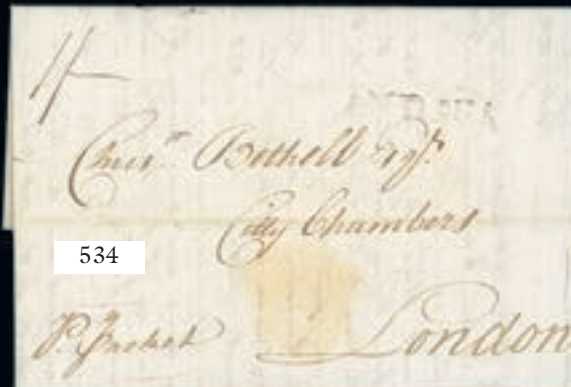 1/-
Chrisr. Bethell Esqr.
Citty Chambers
534
P. Packet London